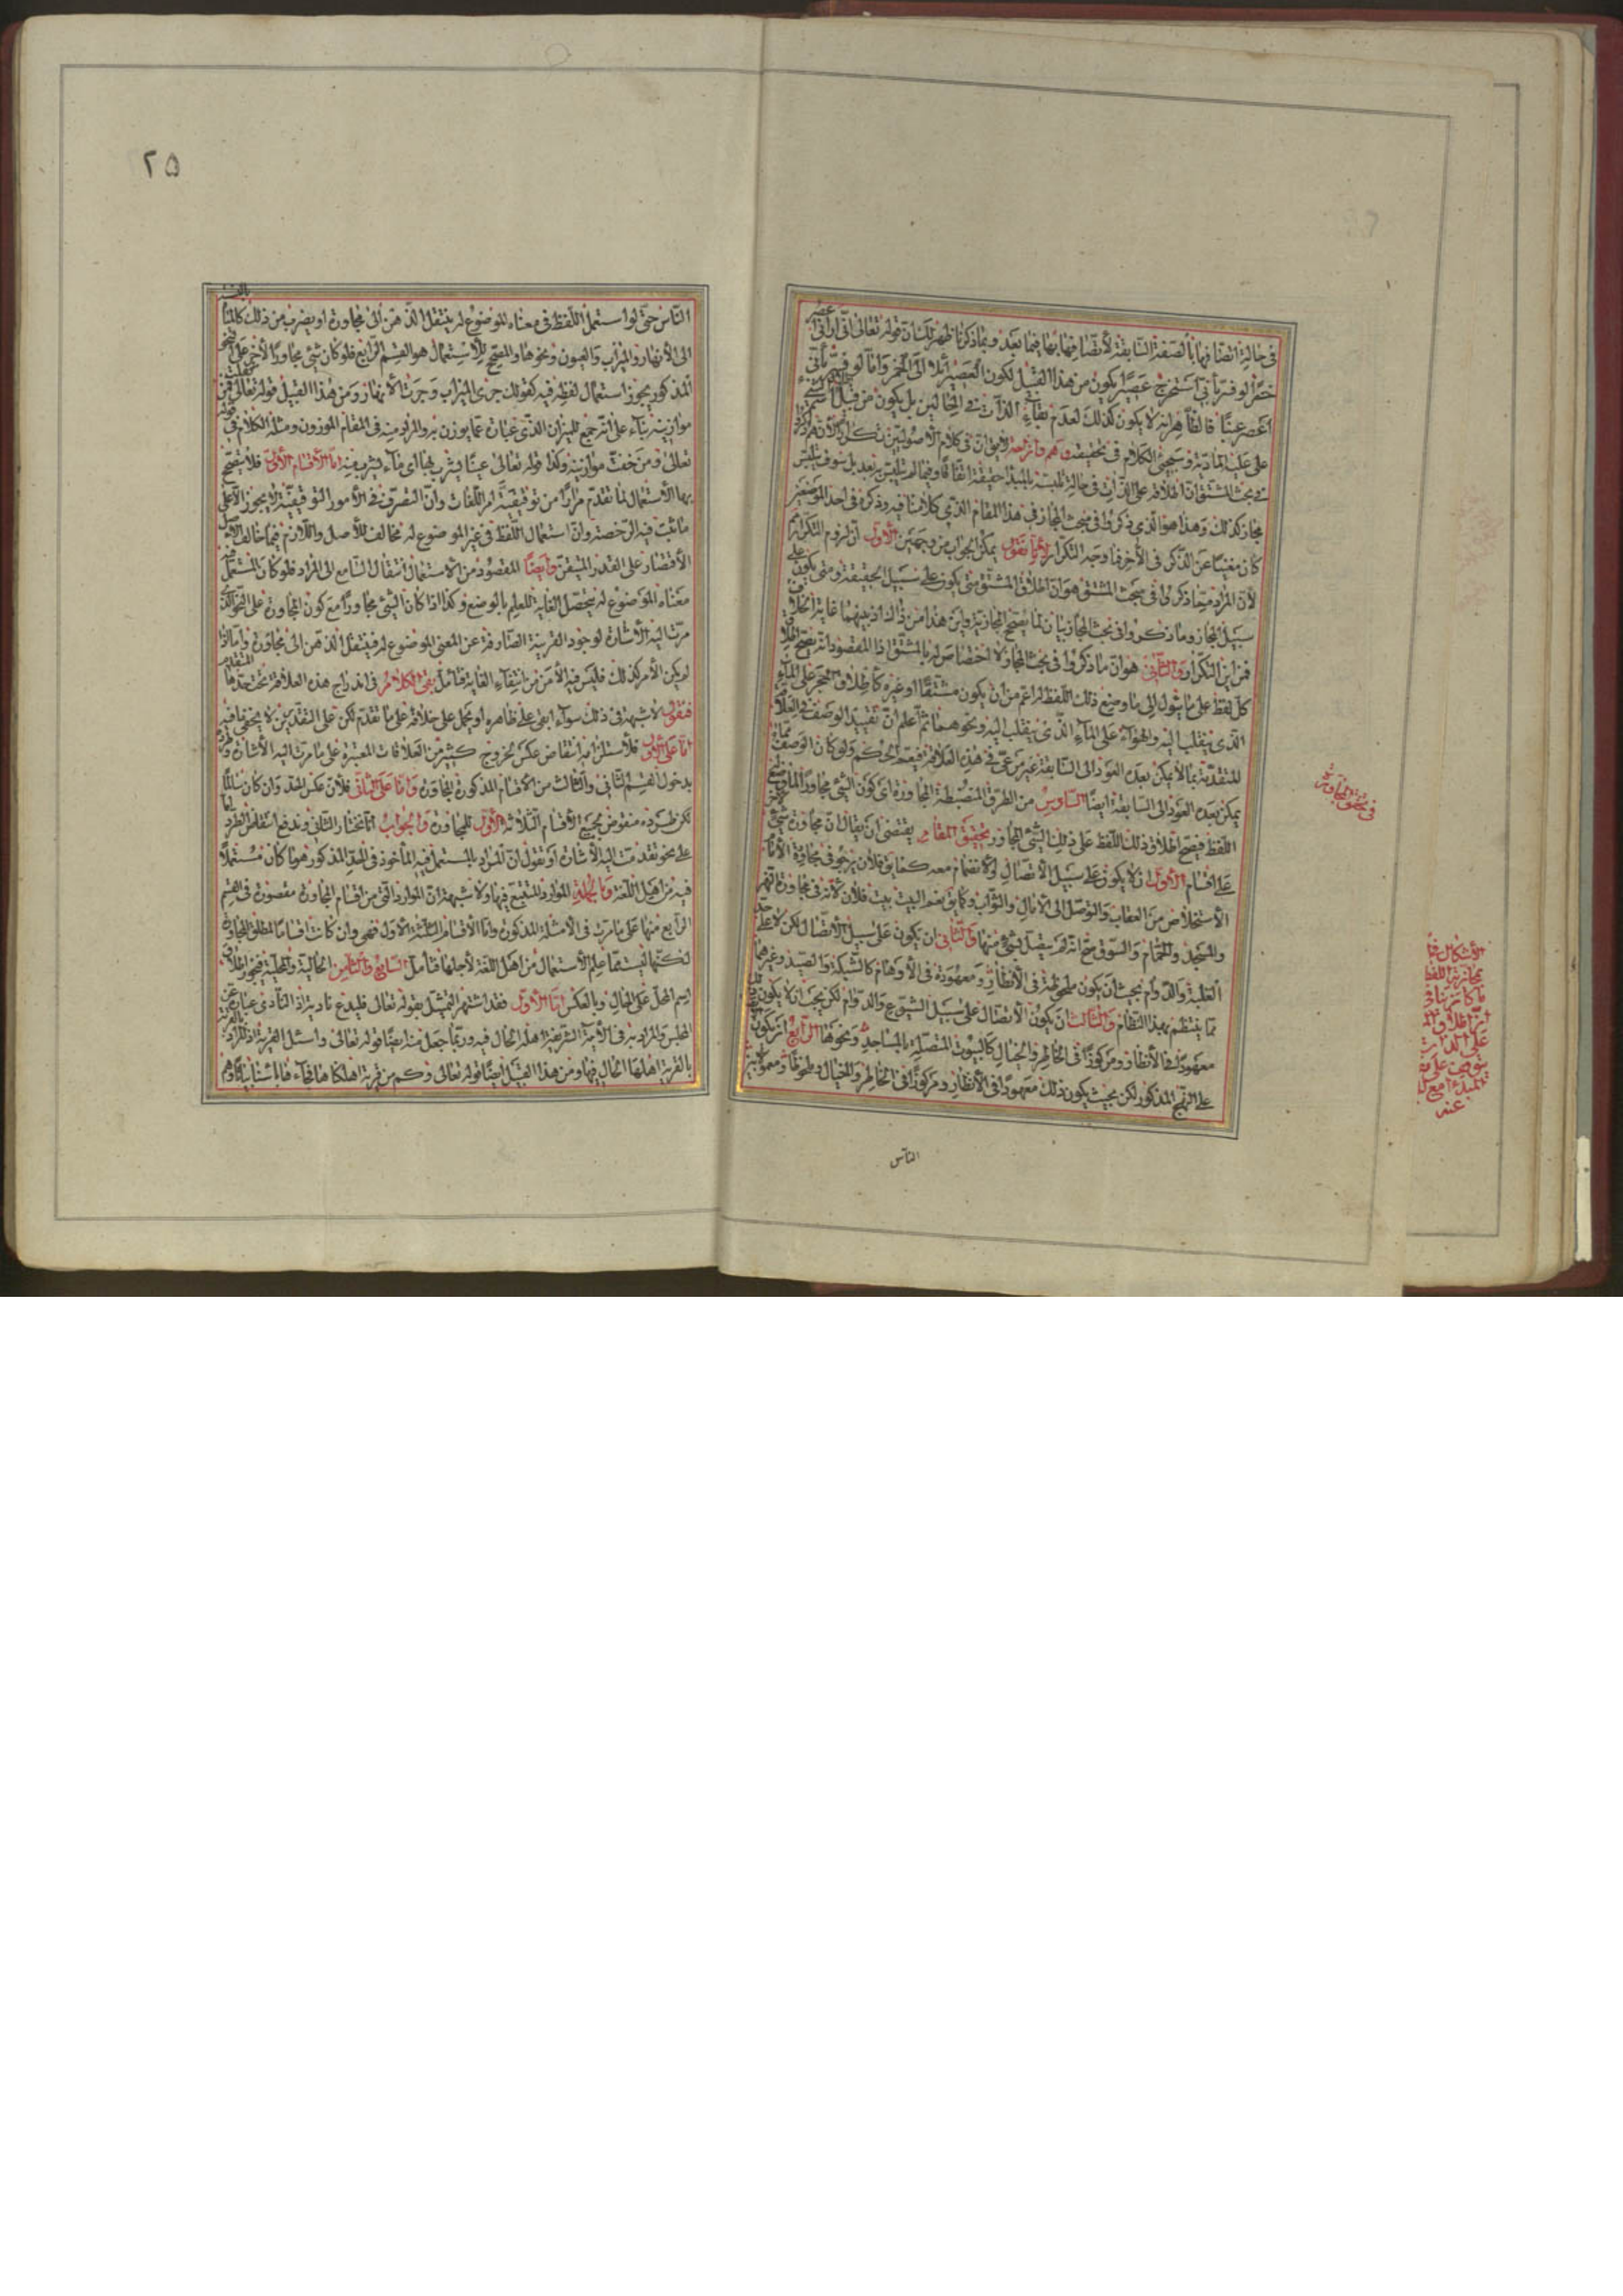 في حالة اتصافها بالصفة السابقة لاتصافها بها فيما بعد وبما ذكرنا ظهر لك ان قوله تعالى اني اراني اعصر
خمرا لو فسر باني استخرج عصيرا يكون من هذا القبيل لكون العصير آئلا الى الخمر واما لو فسر باني
اعصر عنبا فالظاهر انه لا يكون كذلك لعدم بقاء الذات في الحالين بل يكون من قبيل
على المادية وسيجئ الكلام في تحقيقه وهم وازاحة لا يق ان في كلام الاصوليين تكرارا لانهم ذكروا
في بحث المشتق ان اطلاقه على الذات في حالة تلبسه بالمبدء حقيقة اتفاقا وفيما لم يتلبس به بعد بل سوف يتلبس
مجاز كذلك وهذا هو الذي ذكروا في مبحث المجاز في هذا المقام الذي كلامنا فيه وذكره في احد الموضعين
كان مغنيا عن الذكر في الاخر فما وجه التكرار لانا نقول يمكن الجواب من وجهين الاول ان لزوم التكرار
لان المراد مما ذكروا في مبحث المشتق هو ان اطلاق المشتق متى يكون على سبيل الحقيقة ومتى يكون على
سبيل المجاز وما ذكروا في بحث المجاز بيان لما يصحح المجازية واين هذا من ذاك اذ بينهما غاية الخلاف
فمن اين التكرار والثاني هو ان ما ذكروا في بحث المجاز لا اختصاص له بالمشتق اذ المقصود انه يصح اطلاق
كل لفظ على ما يئول الى ما وضع ذلك اللفظ له اعم من ان يكون مشتقا او غيره كاطلاق الحجر على الماء
الذي ينقلب اليه والهواء على الماء الذي ينقلب اليه ونحوهما ثم اعلم ان تقييد الوصف في العلاقة
المتقدمة بما لا يمكن بعده العود الى السابقة غير مرعي في هذه العلاقة فيعم الحكم ولو كان الوصف مما
يمكن بعده العود الى السابقة ايضا السادس من الطرق المنضبطة المجاورة اي كون الشئ مجاورا لما وضع
اللفظ فيصح اطلاق ذلك اللفظ على ذلك الشئ المجاور وتحقيق المقام يقتضي ان يقال ان مجاورة شئ
على اقسام الاول ان لا يكون على سبيل الاتصال والانضمام معه كما يق فلان يرجو في مجاورة الامام
الاستخلاص من العقاب والتوصل الى الامال والثواب وكما يق نعم البيت بيت فلان لانه في مجاورة النهر
والمسجد والحمام والسوق مع انه لم يتصل بشئ منها والثاني ان يكون على سبيل الاتصال لكن لا على
الغلبة والدوام بحيث ان يكون ملحوظة في الانظار ومعهودة في الاوهام كالشبكة والصيد وغيرهما
مما ينتظم بهذا النظام والثالث ان يكون الاتصال على سبيل الشيوع والدوام لكن بحيث ان لا يكون
معهودا في الانظار ومركوزا في الخاطر والخيال كالبيوت المتصلة بالمساجد ونحوها الرابع ان يكون
على النهج المذكور لكن بحيث يكون ذلك معهودا في الانظار ومركوزا في الخاطر والخيال
الناس
في تحقيق المجاورة
الاشكال في
مجازية اللفظ
اطلاق
على الذات
المبدء مع
عنه
٢٥
الناس حتى لو استعمل اللفظ في معناه الموضوع له ينتقل الذهن الى مجاوره او يضرب من ذلك كالماء بالنسبة
الى الانهار والميزاب والعيون ونحوها والمصحح للاستعمال هو القسم الرابع فلو كان شئ مجاورا لاخر على النحو
المذكور يجوز استعمال لفظه فيه كقولك جرى الميزاب وجرت الانهار ومن هذا القبيل قوله تعالى فمن ثقلت
موازينه بناء على انه جمع للميزان الذي عبارة عما يوزن به والمراد منه في المقام الموزون ومثله الكلام في قوله
تعالى ومن خفت موازينه وكذا قوله تعالى عينا يشرب بها اي ماء يشرب منه اما الاقسام الاول فلا يصح
بها الاستعمال لما تقدم مرارا من توقيفية امر اللغات وان التصرف في الامور التوقيفية لا يجوز الا على
ما ثبت فيه الرخصة وان استعمال اللفظ في غير الموضوع له مخالف للاصل واللازم فيما خالف الاصل
الاقتصار على القدر المتيقن وايضا المقصود من الاستعمال انتقال السامع الى المراد فلو كان المستعمل فيه
معناه الموضوع له يتحصل الغاية للعلم بالوضع وكذا اذا كان الشئ مجاورا مع كون المجاورة على النحو الذي
مرت اليه الاشارة لوجود القرينة الصارفة عن المعنى الموضوع له فينتقل الذهن الى مجاوره واما اذا
لم يكن الامر كذلك فليس فيه الا من انتفاء الغاية فتامل بقي الكلام في اندراج هذه العلاقة تحت حدها المتقدم
فنقول لا شبهة في ذلك سواء ابقي على ظاهره او يحمل على خلافه على ما تقدم لكن على التقديرين لا يخفى ما فيه
اما على الاول فلاستلزامه انتقاض عكسه لخروج كثير من العلاقات المعتبرة على ما مرت اليه الاشارة
بدخول القسم الثاني والثالث من الاقسام المذكورة للمجاورة واما على الثاني فلان عكس الحد وان كان سالما
لكن طرده منقوض بجميع الاقسام الثلاثة الاول للمجاورة والجواب انا نختار الثاني وندفع انتقاض الطرد
على نحو تقدمت اليه الاشارة او نقول ان المراد بالمستعمل فيه الماخوذ في الحد المذكور هو ما كان مستعملا
فيه من اهل اللغة وبالجملة الموارد المتتبع فيها ولا شبهة ان الموارد التي من اقسام المجاورة مقصورة في القسم
الرابع منها على ما مرت في الامثلة المذكورة واما الاقسام الثلثة الاول فهي وان كانت اقساما لمطلق المجاورة
لكنها ليست مما علم الاستعمال من اهل اللغة لاجلها فتامل السابع والثامن الحالية والمحلية فيجوز اطلاق
اسم المحل على الحال وبالعكس اما الاول فقد اشتهر التمثيل بقوله تعالى فليدع ناديه اذ النادي عبارة عن
المجلس والمراد به في الاية الشريفة اهله الحال فيه وربما جعل منه ايضا قوله تعالى واسئل القرية اذ المراد
بالقرية اهلها الحال فيها ومن هذا القبيل ايضا قوله تعالى وكم من قرية اهلكناها فجاءها باسنا بياتا اوهم